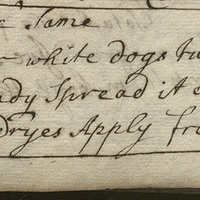 Same
white dogs tu
ady Spread it o
dryes Apply fre